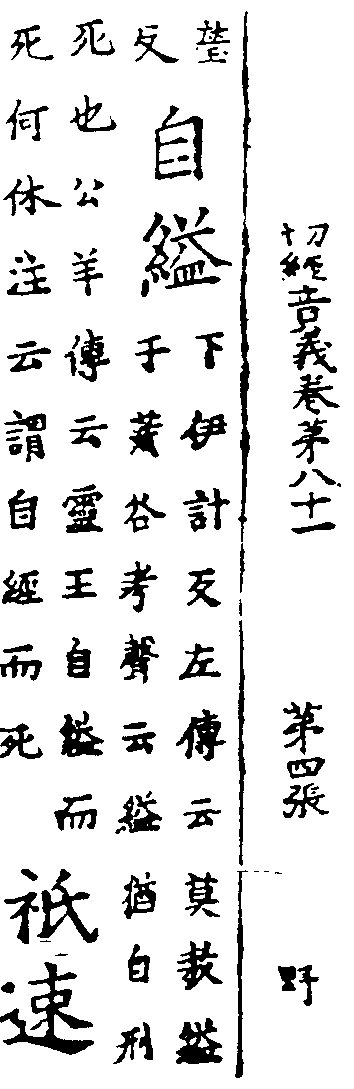 切經音義卷第八十一 第四張 野
瑩
反
自縊
下伊計反左傳云莫敖縊
于荒谷考聲云縊猶自刑
死也公羊傳云靈王自縊而
死何休注云謂自經而死
祇速